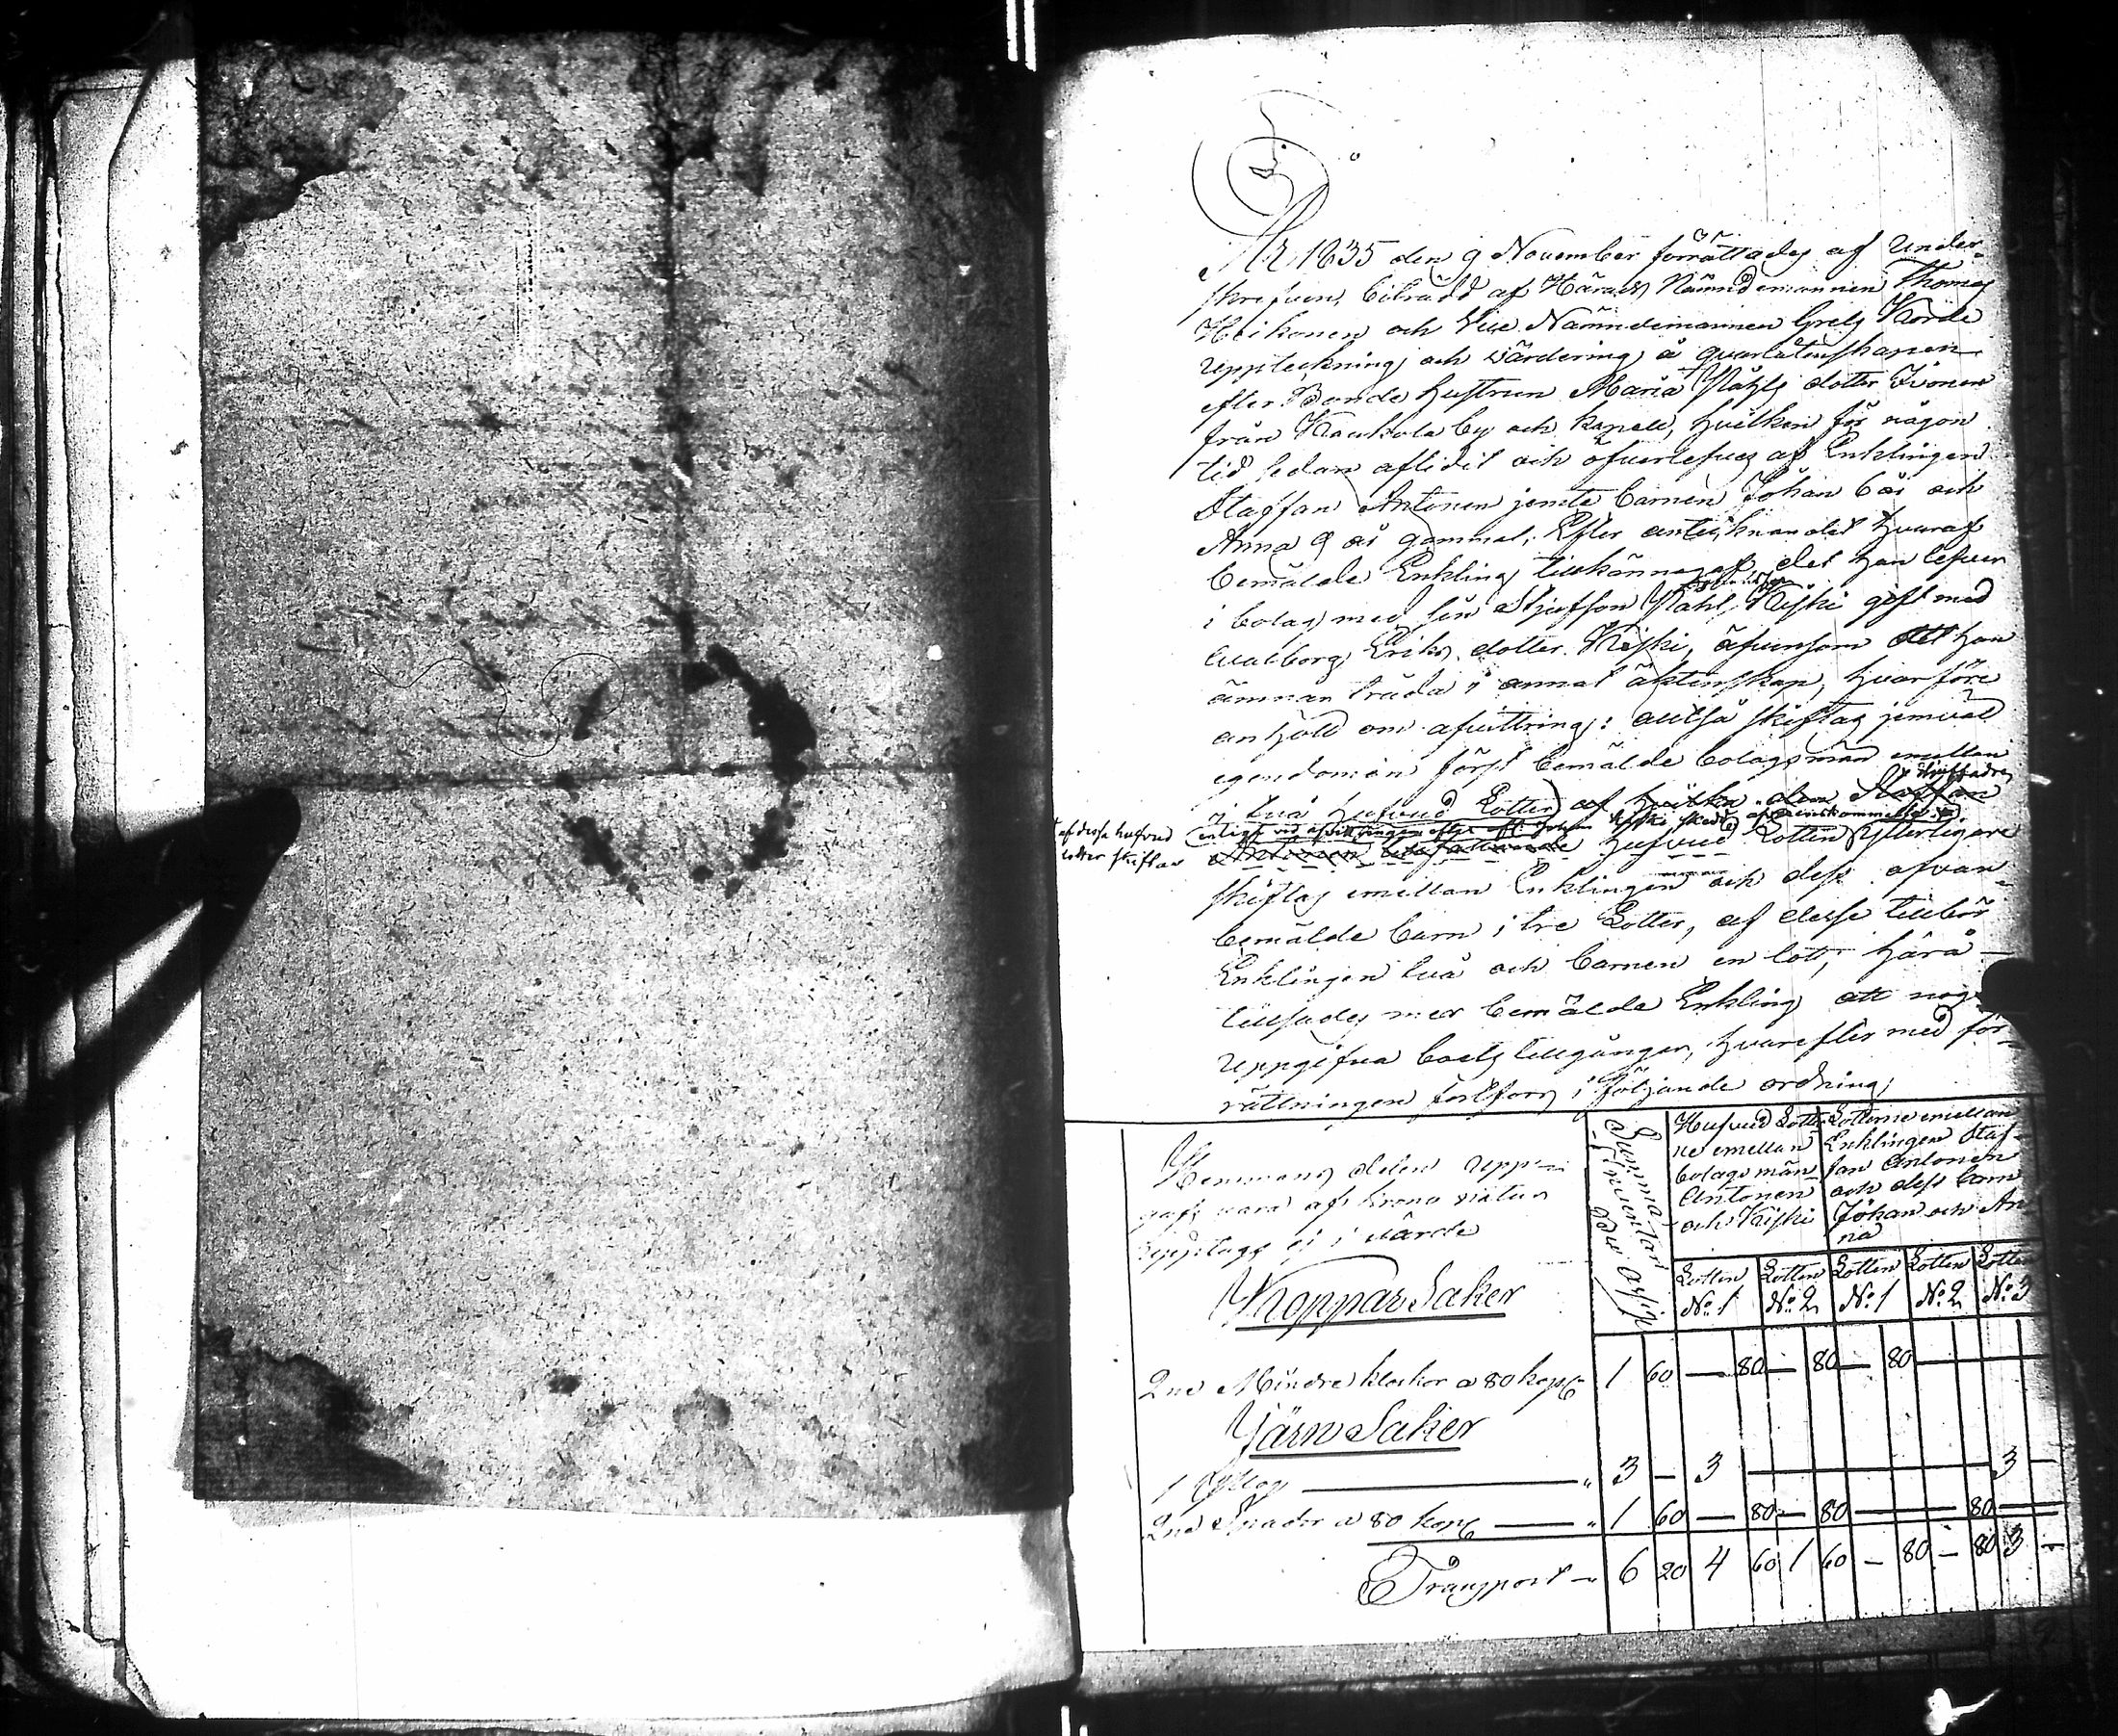 År 1835 den 9 November förrättades af Under-
skrefven, biträdd af Härads Nämndemannen Thomas
Heikonen och Vice Nämndemannen Grels Korde
uppteckning och värdering å qvarlåtenskapen
efter Bonde hustrun Maria Påhls dotter Ivonen
från Kaukola by och kapell, hvilken för någon
tid sedan aflidit och öfverlefves af Enklingen
Staffan Antonen jemte barnen Johan 6 år och
Anna 9 år gammal; Efter antecknandet hvaraf
bemälde Enkling tillkännagaf, det han lefver
i bolag med sin Stjufson Påhl Kiski gift med
Walborg Eriks dotter Kiski, äfvensom att han
ämnar träda i annat äktenskap, hvarföre
anhöld om afvittring; alltså skiftas jemväl
egendomen först bemälde bolagsmän emellan
i två hufvud Lotter af hvilka den Staffan
af dessa hufvud
lotter skiftas
Antonen hufvud Lotten ytterligare
skiftas emellan Enklingen och dess ofvan-
bemälde barn i tre Lotter, af desse tillhör
Enklingen två och barnen en lott; härå
tillsades mer bemälde Enkling att
uppgifva boets tillgångar, hvarefter med för-
rättningen fortfors i följande ordning;
Hemmans delen upp-
gafs vara af krono natur
upptages ej i värde
Summa
Inventarii
Hufvud Lotter
ne emellan
bolagsmän
Antonen
och Kiski
Lotterne emellan
Enklingen Staf-
fan Antonen
och dess barn
Johan och An
na
Lotten N:o 1 Lotten N:o 2 Lotten N:o 1 Lotten N:o 2 Lotten N:o 3
Koppar Saker
2ne Mindre klockor a 80 kop 1 60 — 80 — 80 — 80
Järn Saker
1 — 3 — 3 — 3 —
2ne Spader a 80 kop — 1 60 — 80 — 80 — 80
Transport — 6 20 4 60 1 60 — 80 — 80 3 —